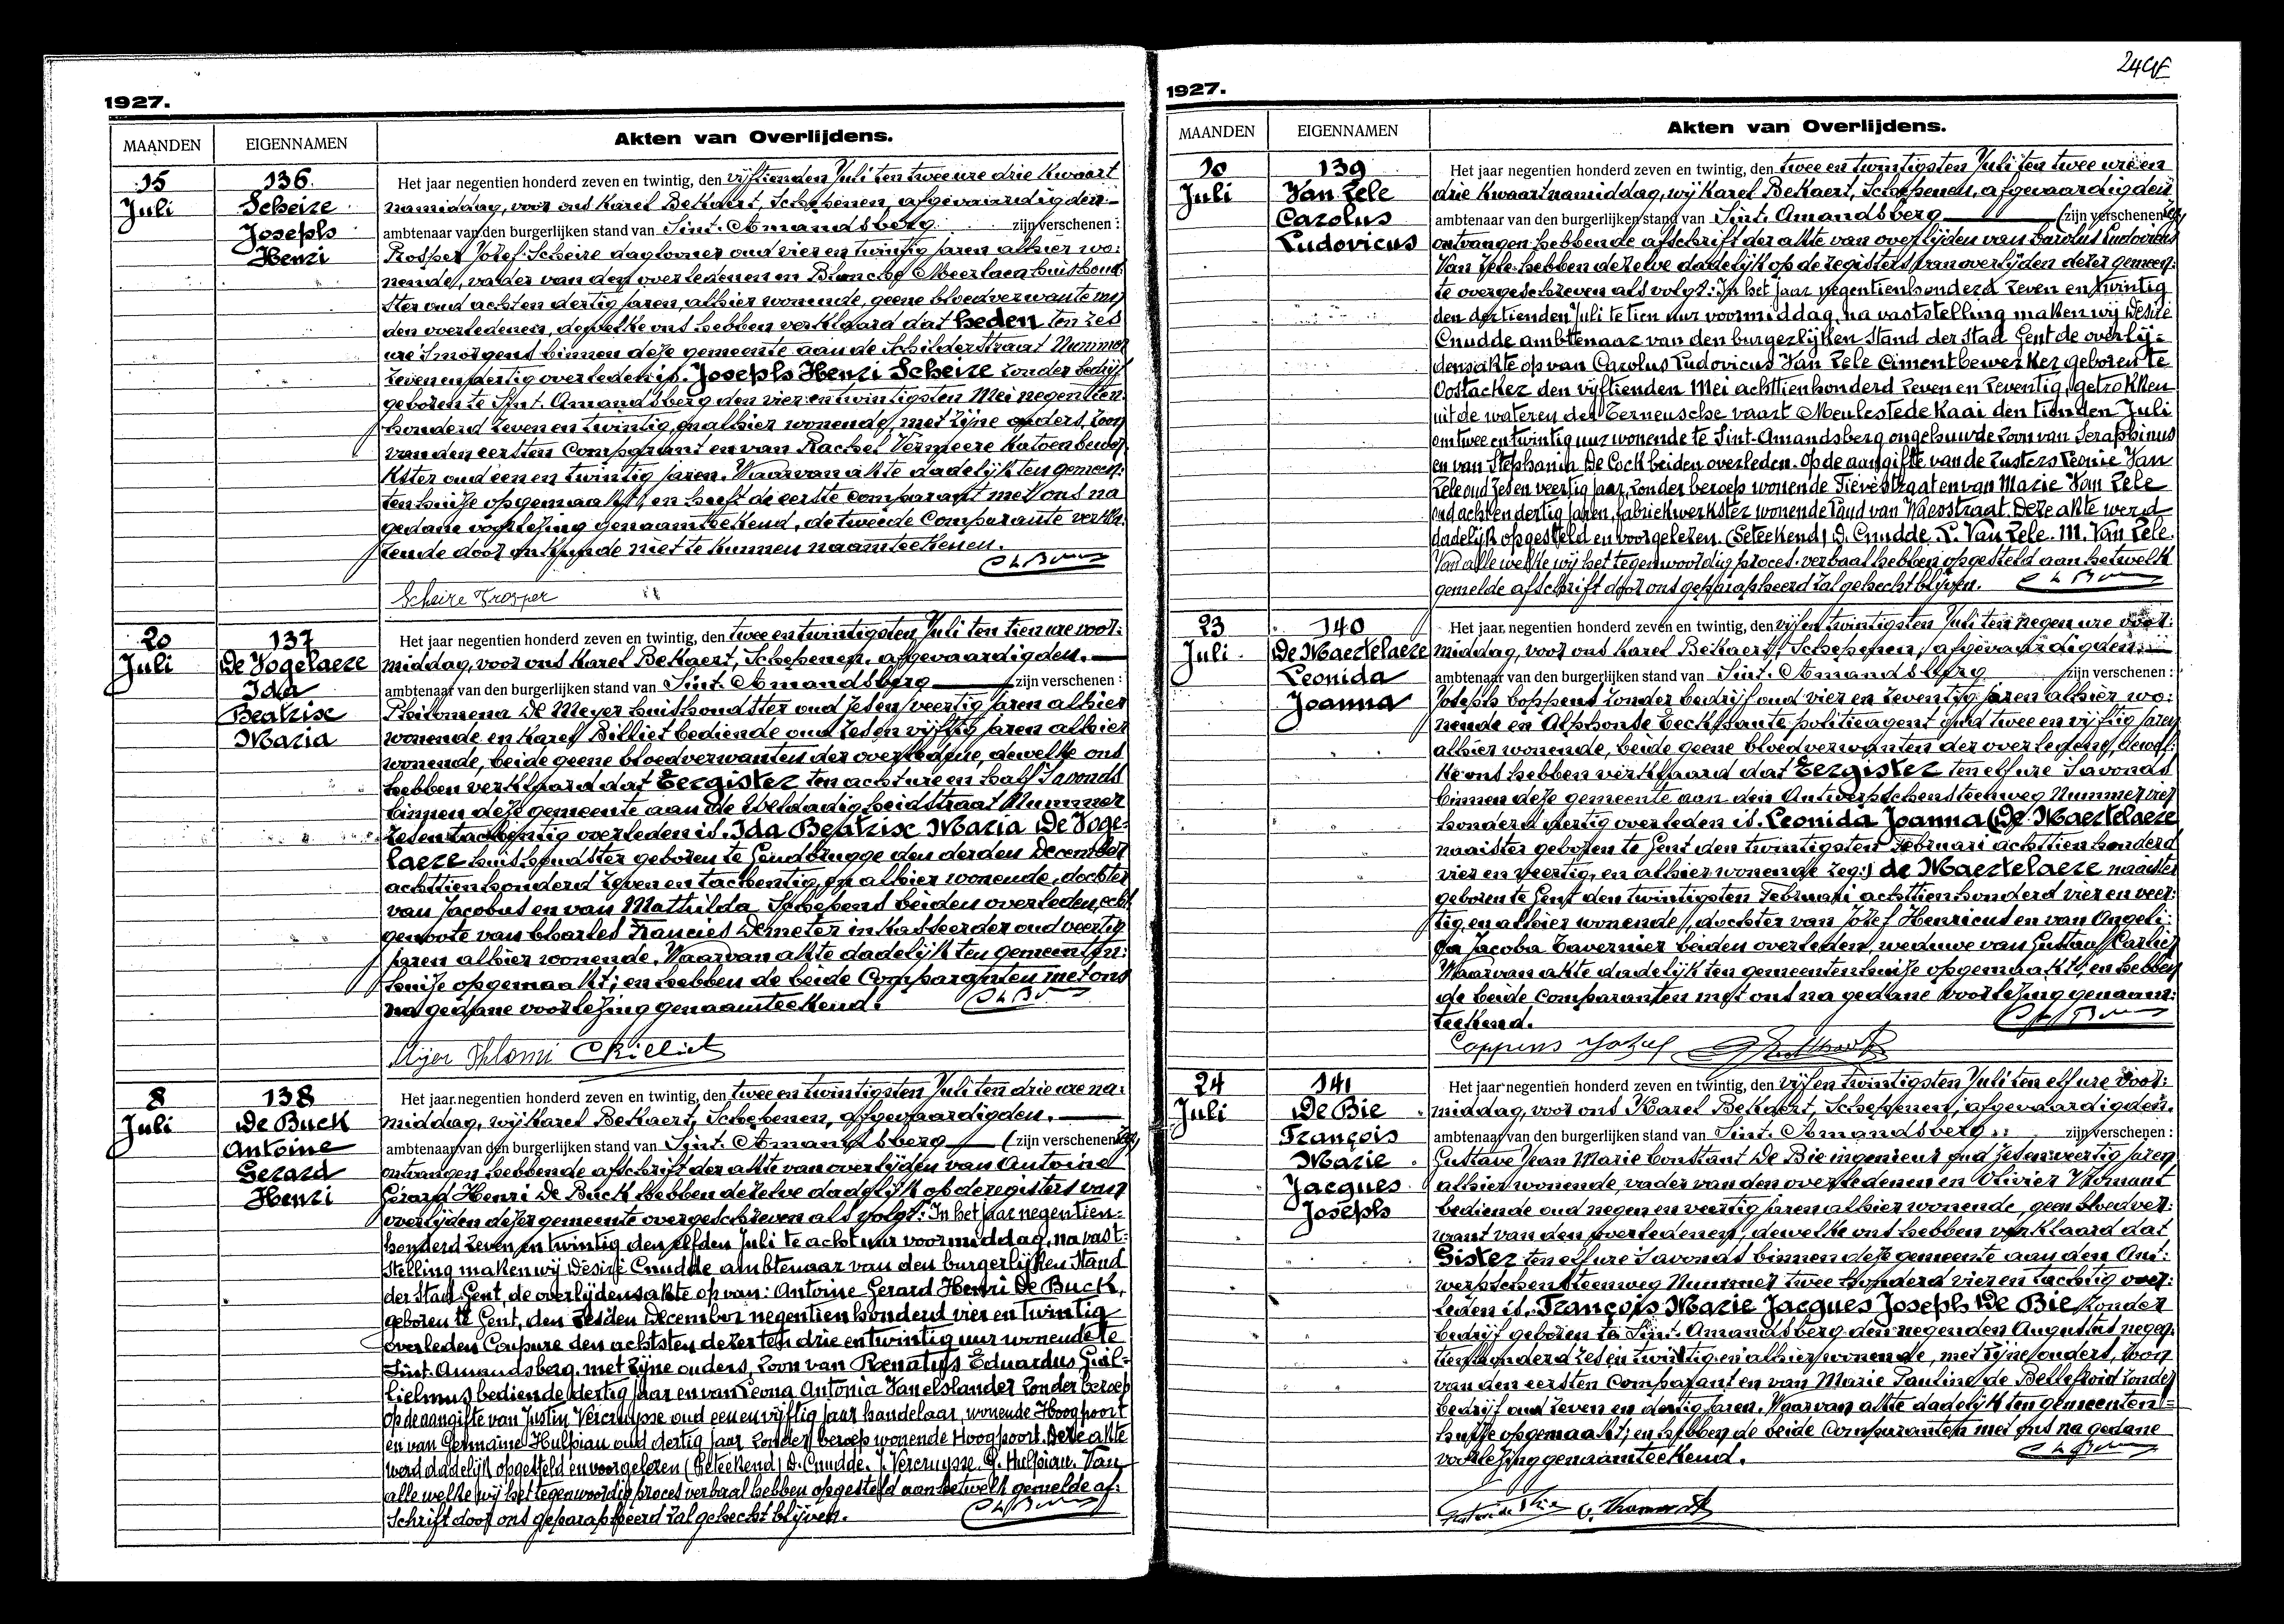 1927.
MAANDEN
EIGENNAMEN
Akten van Overlijdens.
15
Juli
136.
Scheire
Joseph
Henri
Het jaar negentien honderd zeven en twintig, den vijftienden Juli ten twee ure drie kwaart
namiddag, voor ons Karel Bekaert, Schepenen, afgevaardigden
ambtenaar van den burgerlijken stand van Sint. Amandsberg zijn verschenen:
Prosper Jozef Scheire daglooner oud vier en twintig jaren, alhier wo:
nende, vader van den overledenen en Blanche Meerlaen huishoud:
ster oud acht en dertig jaren, alhier wonende, geene bloedverwante van
den overledenen, dewelke ons hebben verklaard dat heden ten zes
ure 'smorgens binnen deze gemeente aan de Schilderstraat Nummer
zeven en dertig overleden is. Joseph Henri Scheire zonder bedrijf
geboren te Sint. Amandsberg den vier en twintigsten Mei negentien
honderd zeven en twintig, en alhier wonende, met zijne ouders, zoon
van den eersten Comparant en van Rachel Vermeere Katoenbewer
kster oud een en twintig jaren. Waarvan akte dadelijk ten gemeen:
tenhuize opgemaakt, en heeft de eerste comparant met ons na
gedane voorlezing genaamteekend, de tweede Comparante verkla:
rende door onkunde niet te kunnen naamteekenen.
Scheire Prosper
20
Juli
137
De Vogelaere
Ida
Beatrise
Maria
Het jaar negentien honderd zeven en twintig, den twee en twintigsten Juli ten tien ure voor:
middag, voor ons Karel Bekaert, Schepenen, afgevaardigden.
ambtenaar van den burgerlijken stand van Sint. Amandsberg zijn verschenen:
Philomena De Meyer huishoudster oud zes en veertig jaren alhier
wonende en Karel Billiet bediende oud zes en vijftig jaren alhier
wonende, beide geene bloedverwanten der overledene, dewelke ons
hebben verklaard dat Eergister ten acht ure en half 's avonds
binnen deze gemeente aan de Weldadigheidstraat Nummer
zes en tachentig overleden is. Ida Beatrise Maria De Voge:
laere huishoudster geboren te Gendbrugge den derden December
achttienhonderd zeven en tachentig, en alhier wonende, dochter
van Jacobus en van Mathilda Schepens beiden overleden, echt
genoote van Charles Francies Demeter inkasseerder oud veertig
jaren alhier wonende. Waarvan akte dadelijk ten gemeenten:
huize opgemaakt; en hebben de beide Comparanten met ons
na gedane voorlezing genaamteekend.
8
Juli
138
De Buck
Antoine
Gerard
Henri
Het jaar negentien honderd zeven en twintig, den twee en twintigsten Juli ten drie ure na:
middag, wij Karel Bekaert, Schepenen, afgevaardigden.
ambtenaar van den burgerlijken stand van Sint. Amandsberg (zijn verschenen zeg)
ontvangen hebbende afschrift der akte van overlijden van Antoine
Gérard Henri De Buck hebben dezelve dadelijk op de registers van
overlijden dezer gemeente overgeschreven als volgt: In het jaar negentien-
honderd zeven en twintig den elfden Juli te acht uur voormiddag, na vast-
stelling maken wij Désiré Cnudde ambtenaar van den burgerlijken Stand
der Stad Gent, de overlijdensakte op van: Antoine Gerard Henri De Buck,
geboren te Gent, den zesden December negentienhonderd vier en twintig
overleden Coupure den achtsten dezer ten drie en twintig uur wonende te
Sint. Amandsberg, met zijne ouders, zoon van Renatus Eduardus Guil-
lielmus bediende dertig jaar en van Leona Antonia Vanelslander zonder beroep
op de aangifte van Justin Vercruysse oud een en vijftig jaar handelaar, wonende Hoogpoort
en van Germaine Hulpiau oud dertig jaar zonder beroep wonende Hoogpoort. Deze akte
werd dadelijk opgesteld en voorgelezen (Geteekend) D. Cnudde. J. Vercruysse. G. Hulpiau. Van
alle welke wij het tegenwoordig proces verbaal hebben opgesteld aan hetwelk gemelde af:
schrift door ons geparapheerd zal gehecht blijven.
1927.
MAANDEN
EIGENNAMEN
Akten van Overlijdens.
10
Juli
139
Van Zele
Carolus
Ludovicus
Het jaar negentien honderd zeven en twintig, den twee en twintigsten Juli ten twee ure en
drie kwaart namiddag, wij Karel Bekaert, Schepenen, afgevaardigden
ambtenaar van den burgerlijken stand van Sint. Amandsberg (zijn verschenen zeg)
ontvangen hebbende afschrift der akte van overlijden van Carolus Ludovicus
Van Zele hebben dezelve dadelijk op de registers van overlijden dezer gemeen:
te overgeschreven als volgt: In het jaar negentienhonderd zeven en twintig
den dertienden Juli te tien uur voormiddag, na vaststelling maken wij Désiré
Cnudde ambtenaar van den burgerlijken Stand der Stad Gent de overlij-
densakte op van Carolus Ludovicus Van Zele Cimentbewerker geboren te
Oostacker den vijftienden Mei achttienhonderd zeven en zeventig, getrokken
uit de wateren der Terneusche vaart Meulestede Kaai den tienden Juli
om twee en twintig uur wonende te Sint-Amandsberg ongehuwde zoon van Seraphinus
en van Stephania De Cock beiden overleden. Op de aangifte van de zusters Leonie Van
Zele oud zes en veertig jaar, zonder beroep wonende Tievestraat en van Marie Van Zele
oud acht en dertig jaren, fabriekwerkster wonende Land van Waesstraat. Deze akte werd
dadelijk opgesteld en voorgelezen. (Geteekend) D. Cnudde. L. Van Zele. M. Van Zele.
Van alle welke wij het tegenwoordig proces-verbaal hebben opgesteld aan hetwelk
gemelde afschrift door ons geparapheerd zal gehecht blijven.
23
Juli
140
De Maertelaere
Leonida
Joanna
Het jaar negentien honderd zeven en twintig, den vijf en twintigsten Juli ten negen ure voor:
middag, voor ons Karel Bekaert, Schepenen, afgevaardigden
ambtenaar van den burgerlijken stand van Sint. Amandsberg zijn verschenen:
Joseph Coppens zonder bedrijf oud vier en zeventig jaren alhier wo:
nende en Alphonse Eechhaute politieagent oud twee en vijftig jaren
alhier wonende, beide geene bloedverwanten der overledene, dewel:
ke ons hebben verklaard dat Eergister ten elf ure 's avonds
binnen deze gemeente aan den Antwerpschensteenweg Nummer vier
honderd veertig overleden is. Leonida Joanna (De Maertelaere
naaister geboren te Gent den twintigsten Februari achttienhonderd
vier en veertig, en alhier wonende zeg:) de Maertelaere naaister
geboren te Gent den twintigsten Februari achttienhonderd vier en veer:
tig, en alhier wonende, dochter van Jozef Henricus en van Angeli:
ca Jacoba Tavernier beiden overleden, weduwe van Gustaaf Carlier
Waarvan akte dadelijk ten gemeentenhuize opgemaakt, en hebben
de beide Comparanten met ons na gedane voorlezing genaam:
teekend.
Coppens Jozef
24
Juli
141
De Bie
François
Marie
Jacques
Joseph
Het jaar negentien honderd zeven en twintig, den vijf en twintigsten Juli ten elf ure voor:
middag, voor ons Karel Bekaert, Schepenen, afgevaardigden.
ambtenaar van den burgerlijken stand van Sint. Amandsberg zijn verschenen:
Gustave Jean Marie Constant De Bie ingenieur oud zes en veertig jaren
alhier wonende, vader van den overledenen en Olivier Thomaut
bediende oud negen en veertig jaren alhier wonende, geen bloedver:
want van den overledenen, dewelke ons hebben verklaard dat
Gister ten elf ure 's avonds binnen deze gemeente aan den Ant:
werpschensteenweg Nummer twee honderd vier en tachtig over:
leden is. François Marie Jacques Joseph De Bie, zonder
bedrijf geboren te Sint. Amandsberg den negenden Augustus negen:
tienhonderd zes en twintig en alhier wonende, met zijne ouders, zoon
van den eersten Comparant en van Marie Pauline de Bellefroid zonder
bedrijf oud zeven en dertig jaren. Waarvan akte dadelijk ten gemeenten-
huize opgemaakt; en hebben de beide Comparanten met ons na gedane
voorlezing genaamteekend.